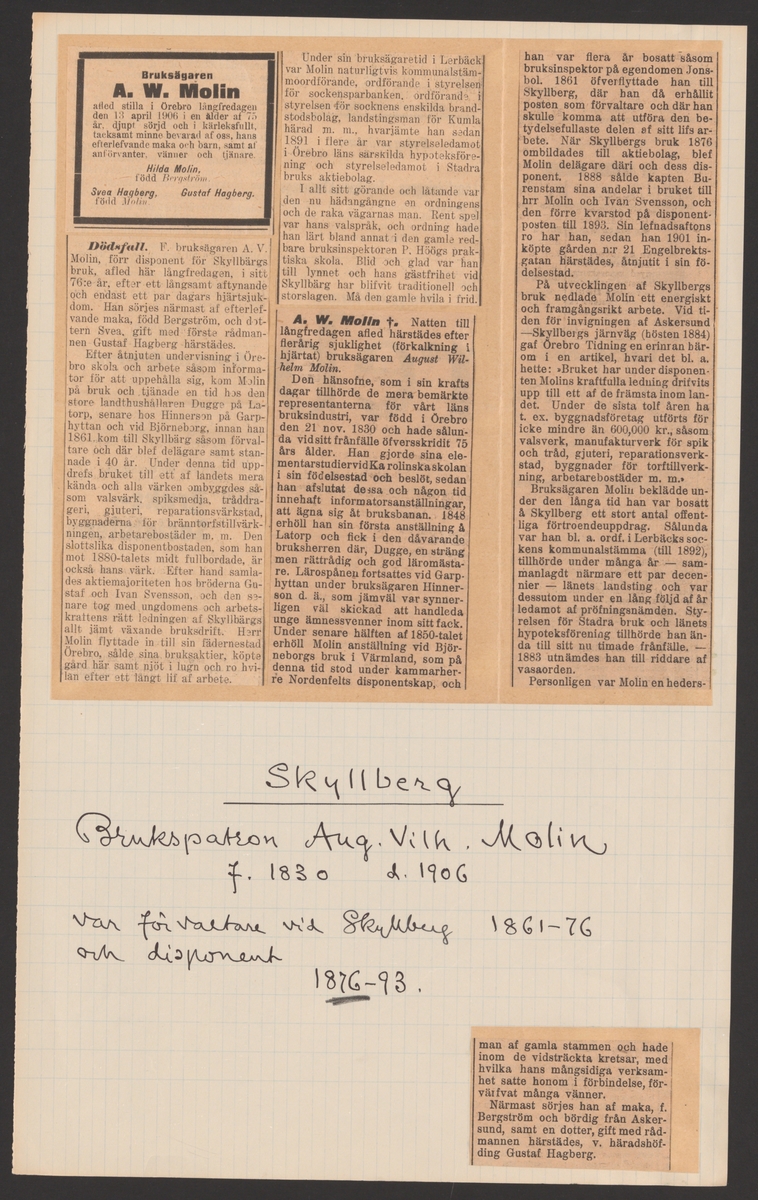 Bruksägaren
A. W. Molin
afled stilla i Örebro långfredagen
den 13 april 1906 i en ålder af 75
år, djupt sörjd och i kärleksfullt,
tacksamt minne bevarad af oss, hans
efterlefvande maka och barn, samt af
anförvanter, vänner och tjänare.
Hilda Molin,
född Bergström.
Svea Hagberg, Gustaf Hagberg.
född Molin
Dödsfall. F. bruksägaren A. V.
Molin, förr disponent för Skyllbärgs
bruk, afled här långfredagen, i sitt
76:e år, efter ett långsamt aftynande
och endast ett par dagars hjärtsjuk-
dom. Han sörjes närmast af efterlef-
vande maka, född Bergström, och dot-
tern Svea, gift med förste rådman-
nen Gustaf Hagberg härstädes.
Efter åtnjuten undervisning i Öre-
bro skola och arbete såsom informa-
tor för att uppehålla sig, kom Molin
på bruk och tjänade en tid hos den
store landthushållaren Dugge på La-
torp, senare hos Hinnerson på Garp-
hyttan och vid Björneborg, innan han
1861 kom till Skyllbärg såsom förval-
tare och där blef delägare samt stan-
nade i 40 år. Under denna tid upp-
drefs bruket till ett af landets mera
kända och alla värken ombyggdes så-
som valsvärk, spiksmedja, tråddra-
geri, gjuteri, reparationsvärkstad,
byggnaderna för bränntorfstillvärk-
ningen, arbetarebostäder m. m. Den
slottslika disponentbostaden, som han
mot 1880-talets midt fullbordade, är
också hans värk. Efter hand samla-
des aktiemajoriteten hos bröderna Gu-
staf och Ivan Svensson, och den se-
nare tog med ungdomens och arbets-
kraftens rätt ledningen af Skyllbärgs
allt jämt växande bruksdrift. Herr
Molin flyttade in till sin fädernestad
Örebro, sålde sina bruksaktier, köpte
gård här samt njöt i lugn och ro hvi-
lan efter ett långt lif af arbete.
Under sin bruksägaretid i Lerbäck
var Molin naturligtvis kommunalstäm-
moordförande, ordförande i styrelsen
för sockensparbanken, ordförande i
styrelsen för socknens enskilda brand-
stodsbolag, landstingsman för Kumla
härad m. m., hvarjämte han sedan
1891 i flere år var styrelseledamot
i Örebro läns särskilda hypoteksföre-
ning och styrelseledamot i Stadra
bruks aktiebolag.
I allt sitt görande och låtande var
den nu hädangångne en ordningens
och de raka vägarnas man. Rent spel
var hans valspråk, och ordning hade
han lärt bland annat i den gamle red-
bare bruksinspektoren P. Höögs prak-
tiska skola. Blid och glad var han
till lynnet och hans gästfrihet vid
Skyllbärg har blifvit traditionell och
storslagen. Må den gamle hvila i frid.
A. W. Molin †. Natten till
långfredagen afled härstädes efter
flerårig sjuklighet (förkalkning i
hjärtat) bruksägaren August Wil-
helm Molin.
Den hänsofne, som i sin krafts
dagar tillhörde de mera bemärkte
representanterna för vårt läns
bruksindustri, var född i Örebro
den 21 nov. 1830 och hade sålun-
da vid sitt frånfälle öfversskridit 75
års ålder. Han gjorde sina ele-
mentarstudier vid Karolinska skolan
i sin födelsestad och beslöt, sedan
han afslutat dessa och någon tid
innehaft informatorsanställningar,
att ägna sig åt bruksbanan. 1848
erhöll han sin första anställning å
Latorp och fick i den dåvarande
bruksherren där, Dugge, en sträng
men rättrådig och god läromästa-
re. Lärospånen fortsattes vid Garp-
hyttan under bruksägaren Hinner-
son d. ä., som jämväl var synner-
ligen väl skickad att handleda
unge ämnessvenner inom sitt fack.
Under senare hälften af 1850-talet
erhöll Molin anställning vid Björ-
neborgs bruk i Värmland, som på
denna tid stod under kammarher-
re Nordenfelts disponentskap, och
han var flera år bosatt såsom
bruksinspektor på egendomen Jons-
bol. 1861 öfverflyttade han till
Skyllberg, där han då erhållit
posten som förvaltare och där han
skulle komma att utföra den be-
tydelsefullaste delen af sitt lifs ar-
bete. När Skyllbergs bruk 1876
ombildades till aktiebolag, blef
Molin delägare däri och dess di-
sponent. 1888 sålde kapten Bu-
renstam sina andelar i bruket till
hrr Molin och Ivan Svensson, och
den förre kvarstod på disponent-
posten till 1893. Sin lefnadsaftons
ro har han, sedan han 1901 in-
köpte gården n:r 21 Engelbrekts-
gatan härstädes, åtnjutit i sin fö-
delsestad.
På utvecklingen af Skyllbergs
bruk nedlade Molin ett energiskt
och framgångsrikt arbete. Vid ti-
den för invigningen af Askersund
—Skyllbergs järnväg (hösten 1884)
gaf Örebro Tidning en erinran här-
om i en artikel, hvari det bl. a.
hette: »Bruket har under disponen-
ten Molins kraftfulla ledning drifvits
upp till ett af de främsta inom lan-
det. Under de sista tolf åren ha
t. ex. byggnadsföretag utförts för
icke mindre än 600,000 kr., såsom
valsverk, manufakturverk för spik
och tråd, gjuteri, reparationsverk-
stad, byggnader för torftillverk-
ning, arbetarebostäder m. m.»
Bruksägaren Molin beklädde un-
der den långa tid han var bosatt
å Skyllberg ett stort antal offent-
liga förtroendeuppdrag. Sålunda
var han bl. a. ordf. i Lerbäcks soc-
kens kommunalstämma (till 1892),
tillhörde under många år — sam-
manlagdt närmare ett par decen-
nier — länets landsting och var
dessutom under en lång följd af år
ledamot af pröfningsnämden. Sty-
relsen för Stadra bruk och länets
hypoteksförening tillhörde han än-
da till sitt nu timade frånfälle. —
1883 utnämdes han till riddare af
vasaorden.
Personligen var Molin en heders-
Skyllberg
Brukspatron Aug. Vilh. Molin
f. 1830 d. 1906
var förvaltare vid Skyllberg 1861-76
och disponent
1876-93.
man af gamla stammen och hade
inom de vidsträckta kretsar, med
hvilka hans mångsidiga verksam-
het satte honom i förbindelse, för-
värfvat många vänner.
Närmast sörjes han af maka, f.
Bergström och bördig från Asker-
sund, samt en dotter, gift med råd-
mannen härstädes, v. häradshöf-
ding Gustaf Hagberg.